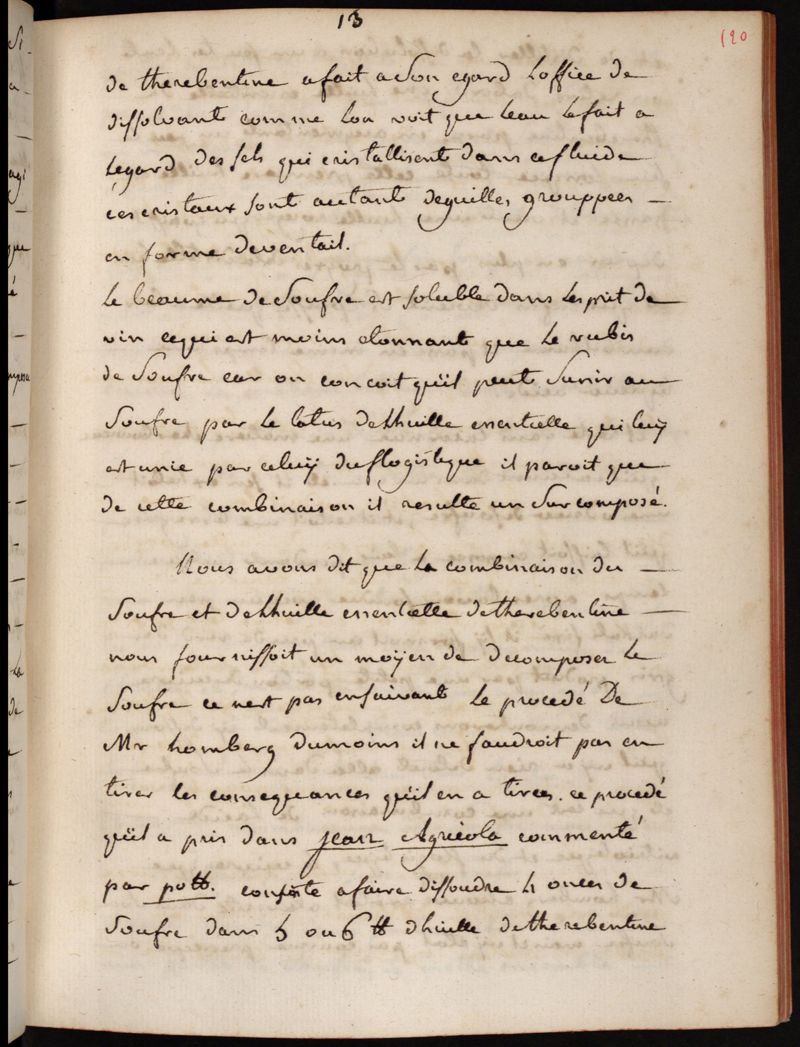 13
120
de therebentine afait a Son egard Loffice de
dissolvant comme Lon voit que Leau Le fait a
Legard des Sels qui cristallisent dans ce fluide
ces cristaux Sont autant deguilles grouppees —
en forme deventail.
Le beaume de Soufre est Soluble dans Lesprit de
vin cequi est moins etonnant que Le rubis
de Soufre car on concoit quïl peut Sunir au
Soufre par Le latus de Lhuille essentielle qui luÿ
est unie par celuÿ duflogistique il paroit que
de cette combinaison il resulte un Sur composé.
Nous avons dit que La combinaison du —
Soufre et de Lhuille essentielle de therebentine —
nous fournissoit un moÿen de decomposer Le
Soufre ce nest pas ensuivant Le procedé De
Mr homberg Dumoins il ne faudroit pas en
tirer les consequances quïl en a tirées. ce procedé
quïl a pris dans jean Agricola commenté
par pott. consiste afaire dissoudre 4 onces de
Soufre dans 5 ou 6 ℔ dhuille de therebentine